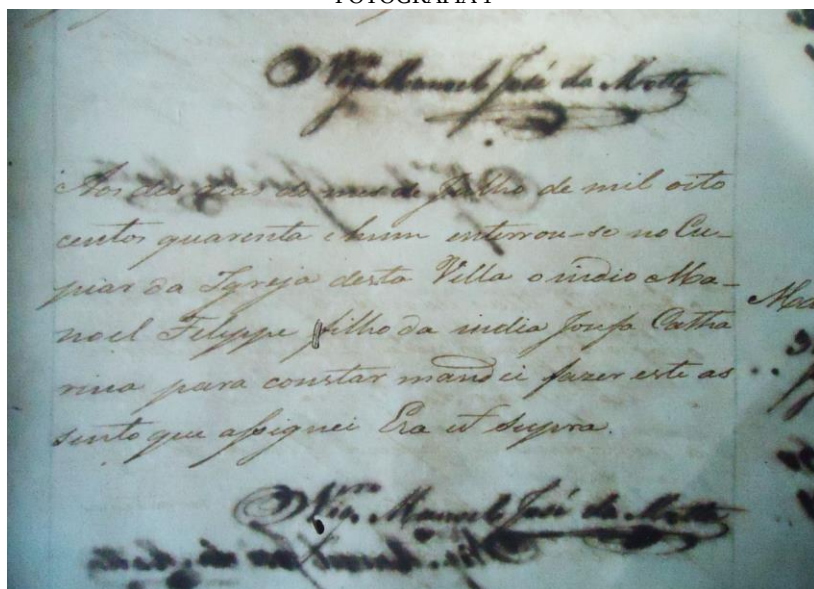 FOTOGRAFIA 1
O Vigro Manoel José da Motta
Aos des dias do mes de Julho de mil oito
centos quarenta e hum enterrou-se no Cu-
piar da Igreja desta Villa o indio Ma-
noel Felippe filho da india Josefa Catha
rina para constar mandei fazer este as
sento que assignei Era ut supra.
O Vigro Manoel José da Motta